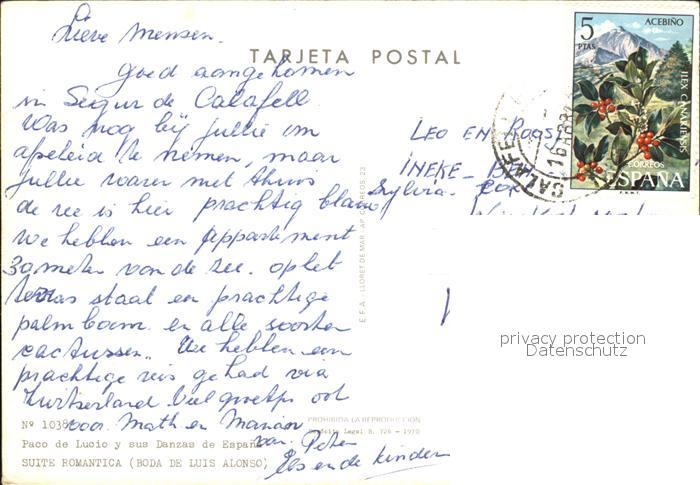 Lieve mensen.
TARJETA POSTAL
goed aangekomen
in Segur de Calafell.
Was nog bij jullie om
afscheid te nemen, maar
jullie waren niet thuis
de zee is hier prachtig blauw
We hebben een appartement
30 meter van de zee. op het
terras staat een prachtige
palmboom en alle soorten
cactussen. We hebben een
prachtige reis gehad via
Zwitserland Veel groetjes ook
voor Math en Marian
van. Peter
Els en de kinderen
Nº 1038
Paco de Lucio y sus Danzas de España
SUITE ROMANTICA (BODA DE LUIS ALONSO)
PROHIBIDA LA REPRODUCCION
Depósito Legal B. 726 - 1970
E.F.A. - LLORET DE MAR. AP. CORREOS, 23
LEO EN ROOSJE
INEKE
Sylvia
5
PTAS
ACEBIÑO
ILEX CANARIENSIS
CORREOS
ESPAÑA
F.N.M.T.
16
privacy protection
Datenschutz